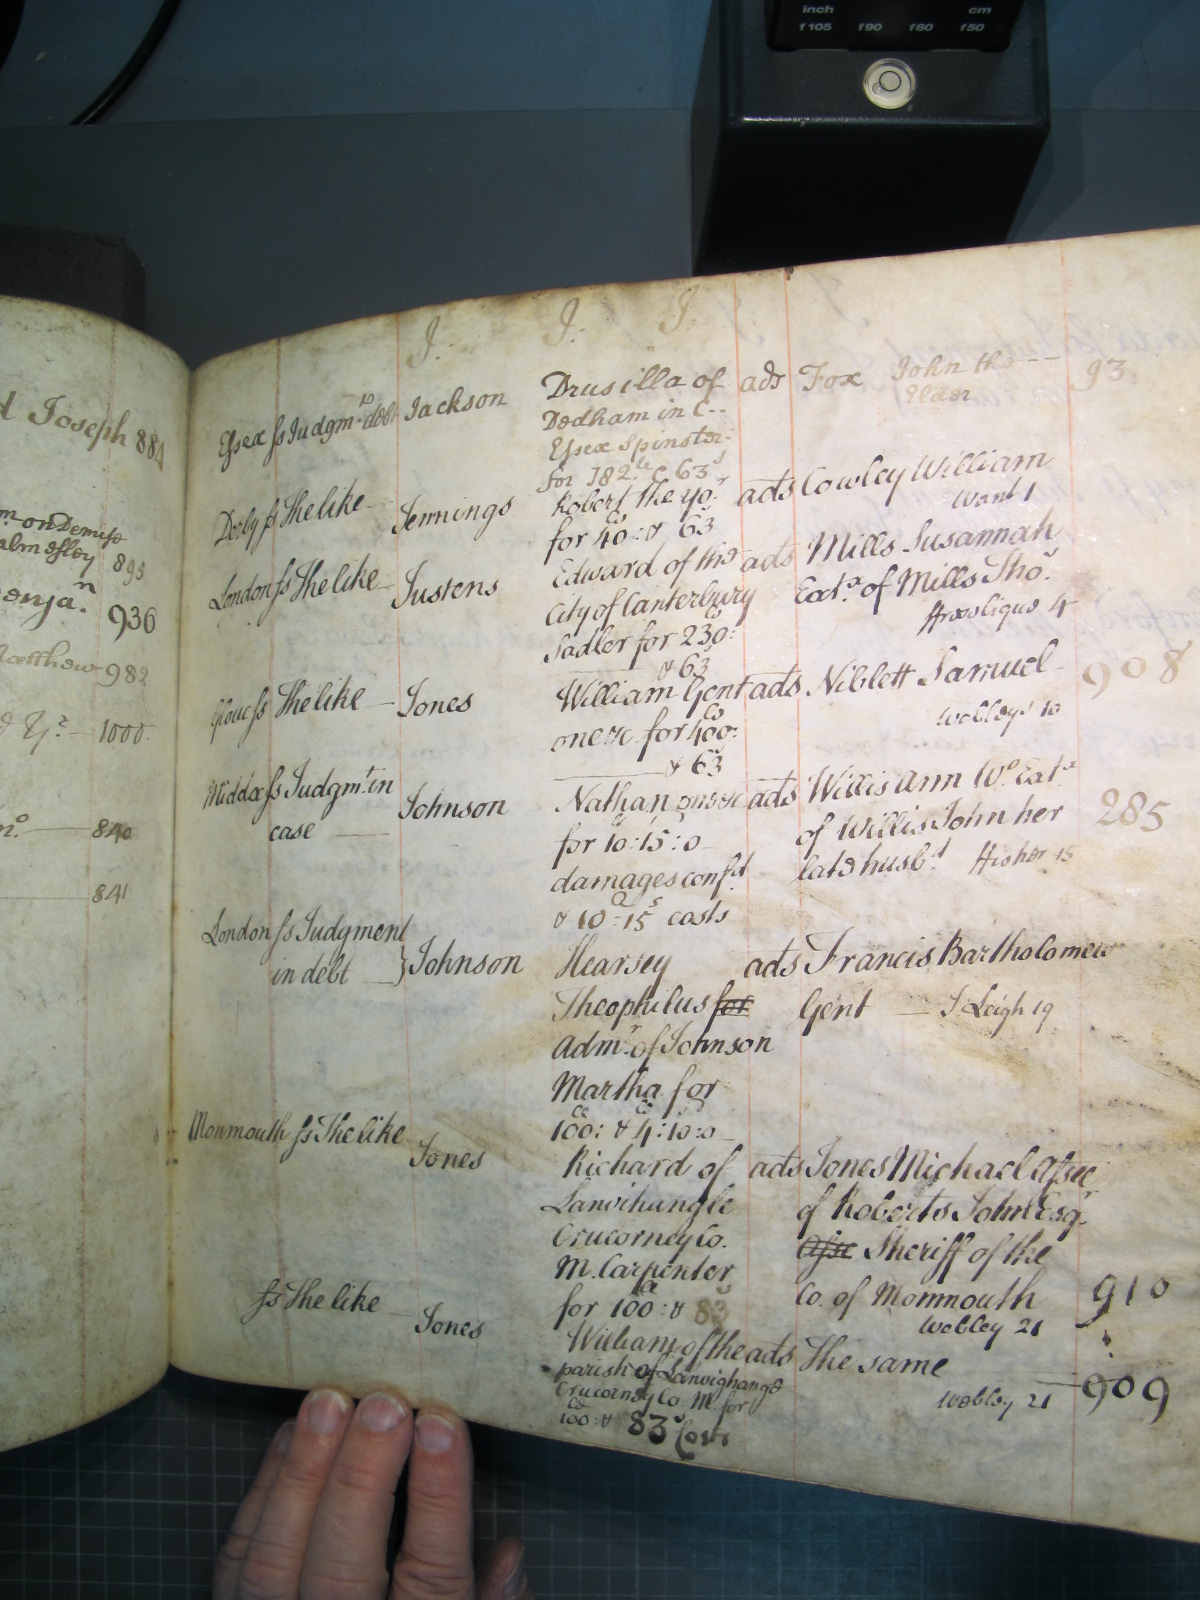 inch cm
f105 f90 f80 f50
d Joseph 884
on Demise
895
enja.n 936
Matthew 982
1000
840
841
J. J. J.
Essex ss Judgm.t debt Jackson Drusilla of ads Fox John the
Dedham in C.. Elder 93
Essex Spinster
for 182.le 63s
Derby ss The like Jennings Robert the yo.r ads Cowley William
for 40: & 63 Want 1
London ss The like Justens Edward of the ads Mills Susannah
City of Canterbury Ext.x of Mills Tho.s
Sadler for 230: 4
& 63
Glouc ss The like Jones William Gent ads Niblett Samuel 908
one &c for 400: Webleys 10
& 63
Middx ss Judgm.t in Johnson Nathan one &c ads Willis Ann W.o Ext.x
case for 10:15:0 of Willis John her 285
damages conf.d late husb.d Higher 15
& 10:15s costs
London ss Judgment Johnson Hearsey ads Francis Bartholomew
in debt Theophilus for Gent J Leigh 19
Adm.r of Johnson
Martha for
100: & 4:10:0
Monmouth ss The like Jones Richard of ads Jones Michael Assee
Lanvihangle of Roberts John Esq.r
Crucorney Co. Asse Sheriff of the
M. Carpenter Co. of Monmouth 910
for 100: & 83 Webley 21
ss The like Jones William of the ads The same
parish of Lanvighange Webley 21 909
Crucorney Co. M. for
100: & 83s Costs